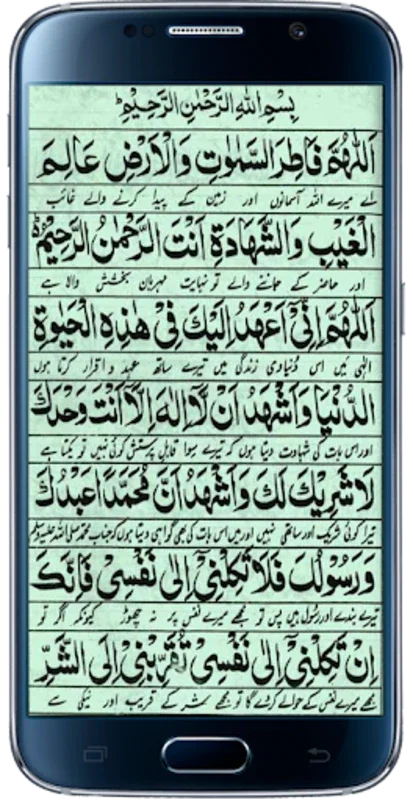 بِسْمِ اللهِ الرَّحْمٰنِ الرَّحِيْمِ
اَللّٰهُمَّ فَاطِرَ السَّمٰوٰتِ وَالْاَرْضِ عَالِمَ
اے میرے اللہ آسمانوں اور زمین کے پیدا کرنے والے غائب
الْغَيْبِ وَالشَّهَادَةِ اَنْتَ الرَّحْمٰنُ الرَّحِيْمُ ط
اور حاضر کے جاننے والے تو نہایت مہربان بخشش والا ہے
اَللّٰهُمَّ اِنِّيْٓ اَعْهَدُ اِلَيْكَ فِيْ هٰذِهِ الْحَيٰوةِ
الٰہی میں اس دنیاوی زندگی میں تیرے ساتھ عہد و اقرار کرتا ہوں
الدُّنْيَا وَاَشْهَدُ اَنْ لَّآ اِلٰهَ اِلَّآ اَنْتَ وَحْدَكَ
اور اس بات کی شہادت دیتا ہوں کہ تیرے سوا قابل پرستش کوئی نہیں تو یکتا ہے
لَاشَرِيْكَ لَكَ وَاَشْهَدُ اَنَّ مُحَمَّدًا عَبْدُكَ
تیرا کوئی شریک اور ساتھی نہیں اور میں اس بات کی بھی گواہی دیتا ہوں کہ جناب محمد صلی اللہ علیہ وسلم
وَرَسُوْلُكَ فَلَا تَكِلْنِيْٓ اِلٰى نَفْسِيْ فَاِنَّكَ
تیرے بندے اور رسول ہیں پس تو مجھے میرے نفس پر نہ چھوڑ کیونکہ اگر تو
اِنْ تَكِلْنِيْٓ اِلٰى نَفْسِيْ تُقَرِّبْنِيْٓ اِلَى الشَّرِّ
مجھے میرے نفس کے حوالے کردے گا تو مجھے شر کے قریب اور نیکی سے